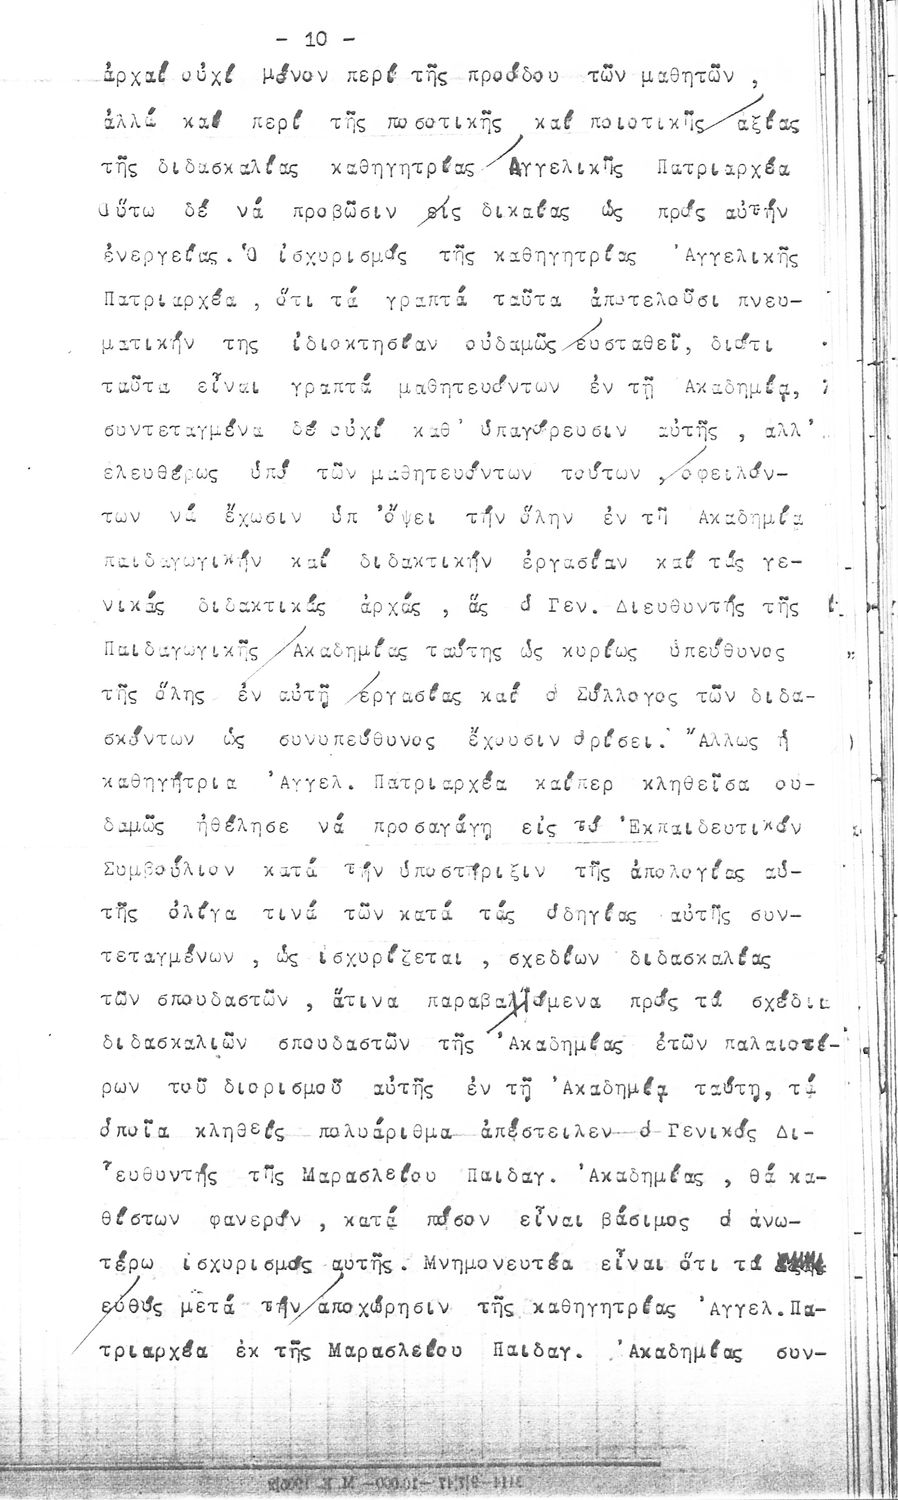 - 10 -
ἀρχαί οὐχί μόνον περί τῆς προόδου τῶν μαθητῶν ,
ἀλλά καί περί τῆς ποσοτικῆς καί ποιοτικῆς ἀξίας
τῆς διδασκαλίας καθηγητρίας Ἀγγελικῆς Πατριαρχέα
οὕτω δέ νά προβῶσιν εἰς δικαίας ὡς πρός αὐτήν
ἐνεργείας. Ὁ ἰσχυρισμός τῆς καθηγητρίας Ἀγγελικῆς
Πατριαρχέα , ὅτι τά γραπτά ταῦτα ἀποτελοῦσι πνευ-
ματικήν της ἰδιοκτησίαν οὐδαμῶς εὐσταθεῖ, διότι
ταῦτα εἶναι γραπτά μαθητευόντων ἐν τῇ Ἀκαδημίᾳ,
συντεταγμένα δέ οὐχί καθ' ὑπαγόρευσιν αὐτῆς , ἀλλ'
ἐλευθέρως ὑπό τῶν μαθητευόντων τούτων , ὀφειλόν-
των νά ἔχωσιν ὑπ' ὄψει τήν ὅλην ἐν τῇ Ἀκαδημίᾳ
παιδαγωγικήν καί διδακτικήν ἐργασίαν καί τάς γε-
νικάς διδακτικάς ἀρχάς , ἅς ὁ Γεν. Διευθυντής τῆς
Παιδαγωγικῆς Ἀκαδημίας ταύτης ὡς κυρίως ὑπεύθυνος
τῆς ὅλης ἐν αὐτῇ ἐργασίας καί ὁ Σύλλογος τῶν διδα-
σκόντων ὡς συνυπεύθυνος ἔχουσιν ὁρίσει. Ἄλλως ἡ
καθηγήτρια Ἀγγελ. Πατριαρχέα καίπερ κληθεῖσα οὐ-
δαμῶς ἠθέλησε νά προσαγάγῃ εἰς τό Ἐκπαιδευτικόν
Συμβούλιον κατά τήν ὑποστήριξιν τῆς ἀπολογίας αὐ-
τῆς ὀλίγα τινά τῶν κατά τάς ὁδηγίας αὐτῆς συν-
τεταγμένων , ὡς ἰσχυρίζεται , σχεδίων διδασκαλίας
τῶν σπουδαστῶν , ἅτινα παραβαλλόμενα πρός τά σχέδια
διδασκαλιῶν σπουδαστῶν τῆς Ἀκαδημίας ἐτῶν παλαιοτέ-
ρων τοῦ διορισμοῦ αὐτῆς ἐν τῇ Ἀκαδημίᾳ ταύτῃ, τά
ὁποῖα κληθείς πολυάριθμα ἀπέστειλεν ὁ Γενικός Δι-
ευθυντής τῆς Μαρασλείου Παιδαγ. Ἀκαδημίας , θά κα-
θίστων φανερόν , κατά πόσον εἶναι βάσιμος ὁ ἀνω-
τέρω ἰσχυρισμός αὐτῆς . Μνημονευτέα εἶναι ὅτι τά
εὐθύς μετά τήν ἀποχώρησιν τῆς καθηγητρίας Ἀγγελ.Πα-
τριαρχέα ἐκ τῆς Μαρασλείου Παιδαγ. Ἀκαδημίας συν-